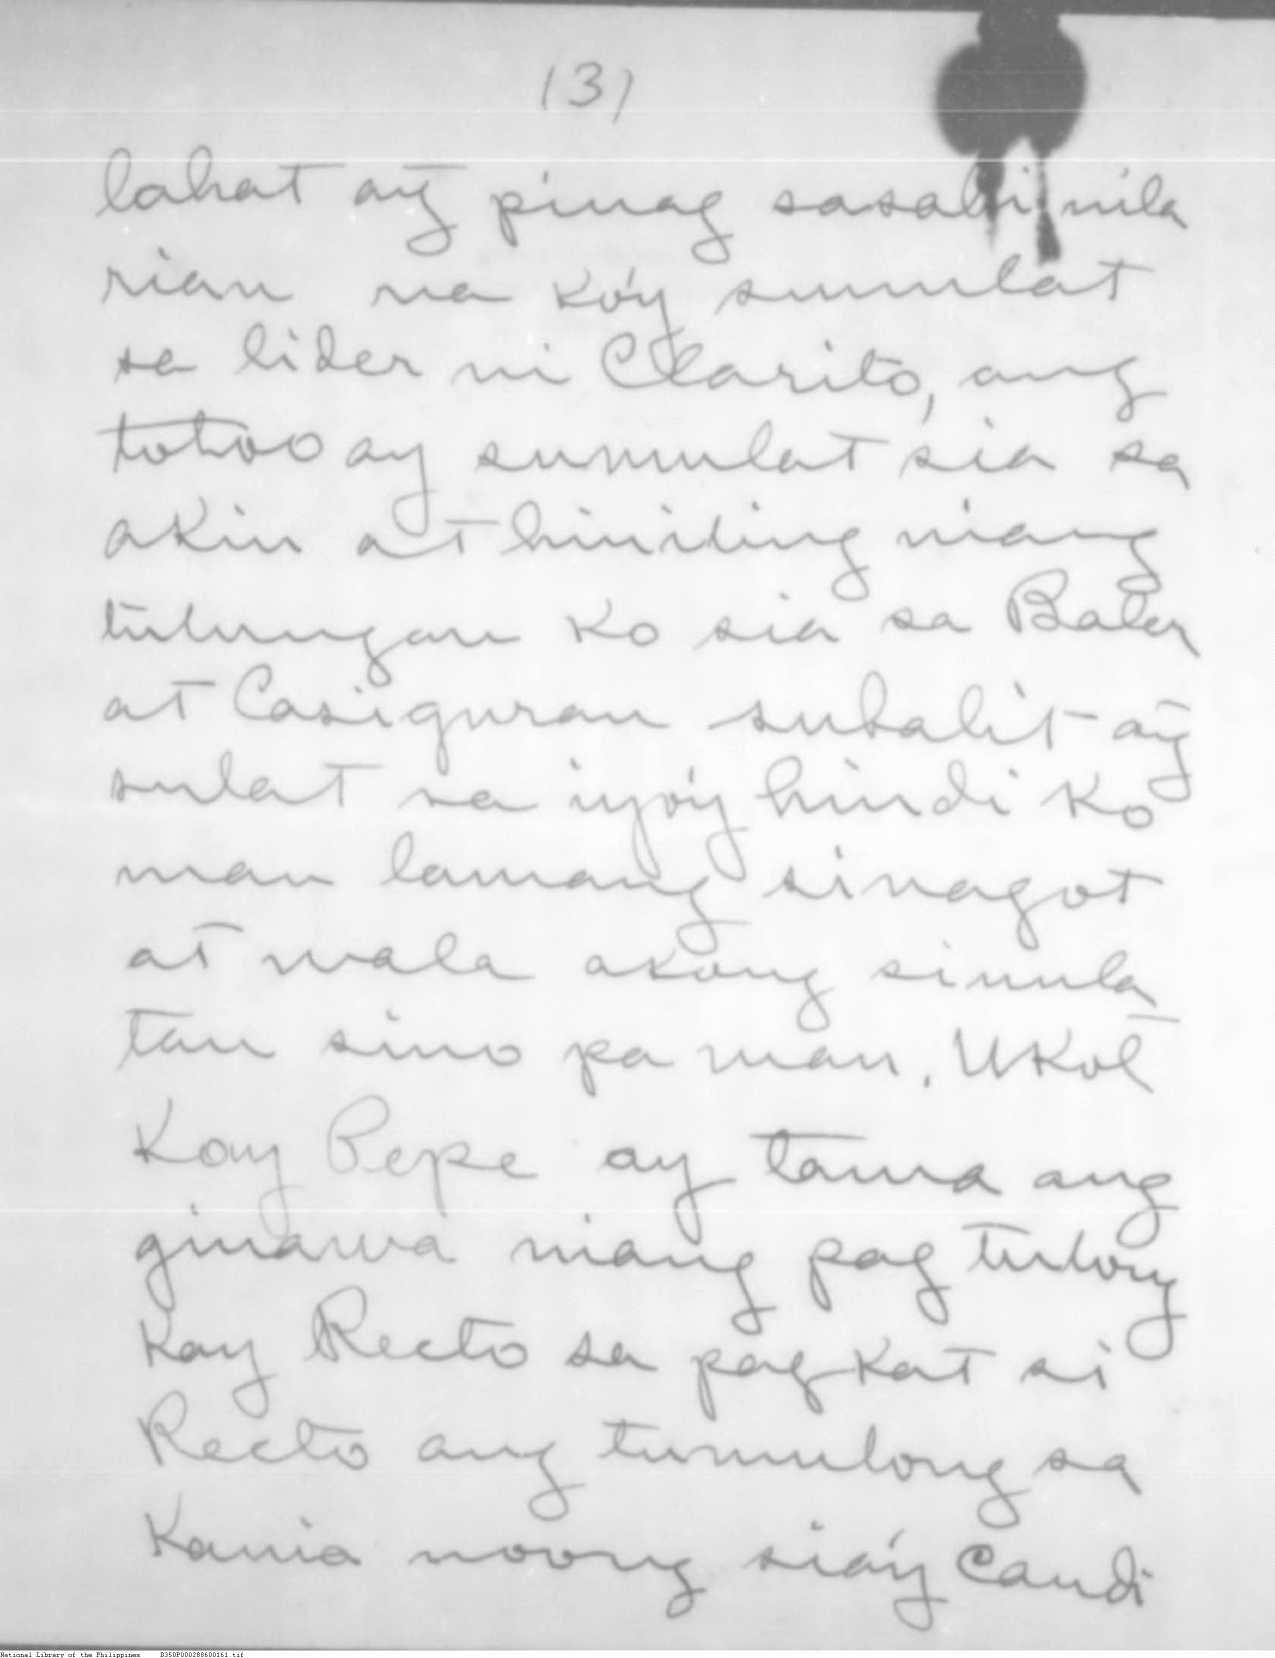 (3)
lahat ay pinag sasabi nila
rian na ko'y sumulat
sa lider ni Clarito, ang
totoo ay sumulat sia sa
akin at hiniling niang
tulungan ko sia sa Baler
at Casiguran subalit ang
sulat na iyo'y hindi ko
man lamang sinagot
at wala akong sinula
tan sino pa man. Ukol
Kay Pepe ay tama ang
ginawa niang pag tulong
Kay Recto sa pagkat si
Recto ang tumulong sa
Kania noong sia'y Candi
National Library of the Philippines D350P000288600161.tif